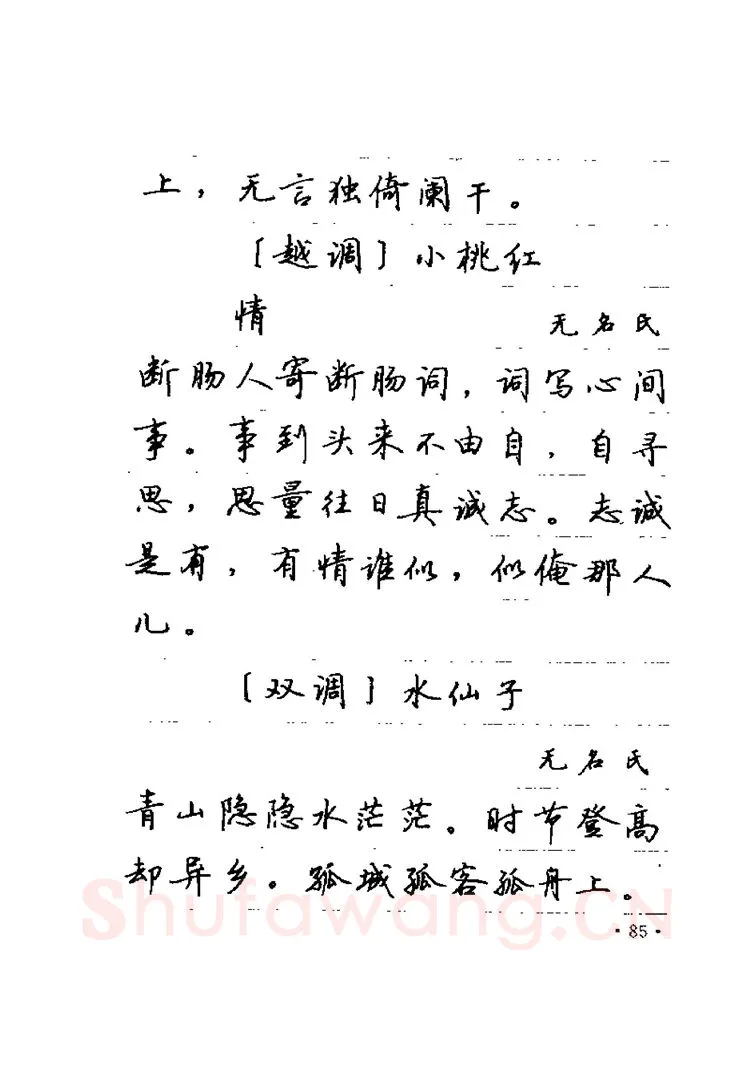 上，无言独倚阑干。
〔越调〕小桃红
情 无名氏
断肠人寄断肠词，词写心间
事。事到头来不由自，自寻
思，思量往日真诚志。志诚
是有，有情谁似，似俺那人
儿。
〔双调〕水仙子
无名氏
青山隐隐水茫茫。时节登高
却异乡。孤城孤客孤舟上。
Shufawang.CN
·85·